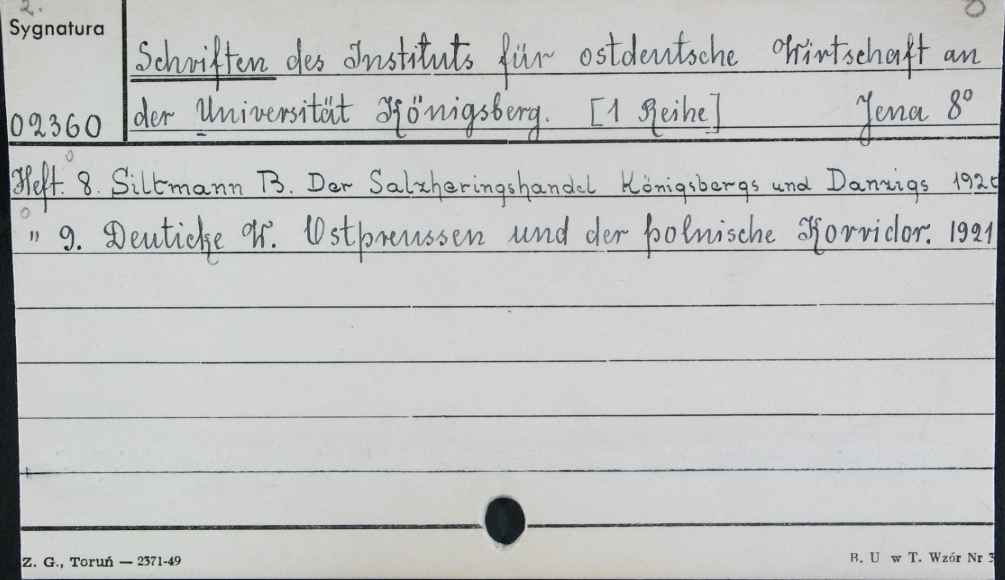 2.
Sygnatura
Schriften des Instituts für ostdeutsche Wirtschaft an
02360 der Universität Königsberg. [1 Reihe] Jena 8°
Heft. 8. Siltmann B. Der Salzheringshandel Königsbergs und Danzigs
" 9. Deuticke W. Ostpreussen und der polnische Korridor. 1921
Z. G., Toruń — 2371-49 B. U w T. Wzór Nr 3